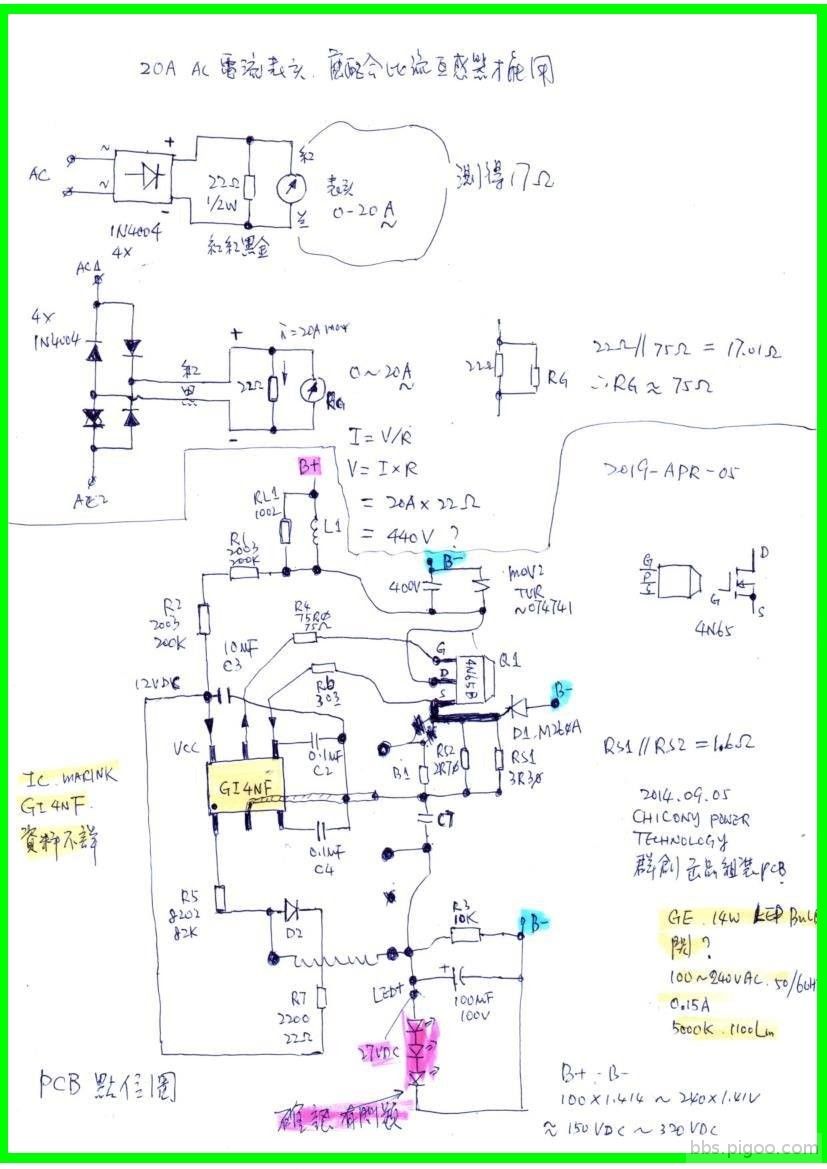 20A AC 電流表頭. 應配合比流互感器才能用
AC
~
~
+
-
1N4004
4X
22Ω
1/2W
紅紅黑金
紅
表頭
0-20A
~
測得17Ω
AC1
4X
1N4004
AC2
紅
黑
+
-
i=20A max
22Ω
RG
0~20A
~
I=V/R
V=I×R
=20A×22Ω
=440V ?
22Ω
RG
22Ω//75Ω=17.01Ω
∴RG≈75Ω
2019-APR-05
B+
RL1
L1
R1
2003
200K
R2
2003
200K
10μF
C3
12VDC
VCC
R4
75R0
75Ω
R6
303
B-
400V
MOV2
TVR
~074741
G
D
S
4N65B
Q1
G
D
S
G
D
S
4N65
B-
D1.M260A
RS2
2R70
RS1
3R30
B1
RS1//RS2=1.6Ω
IC.MARINK
GI4NF.
資料不詳
GI4NF
0.1μF
C2
0.1μF
C4
C7
R5
8202
82K
D2
R7
2200
22Ω
R3
10K
B-
LED+
+
100μF
100V
27VDC
2014.09.05
CHICONY POWER
TECHNOLOGY
群創 PCB
GE.14W LED Bulb
100~240VAC.50/60H
0.15A
5000K.1100Lm
PCB 點位圖
確認有問題
B+:B-
100X1.414 ~ 240X1.41V
≈150VDC ~ 320VDC
bbs.pigoo.com